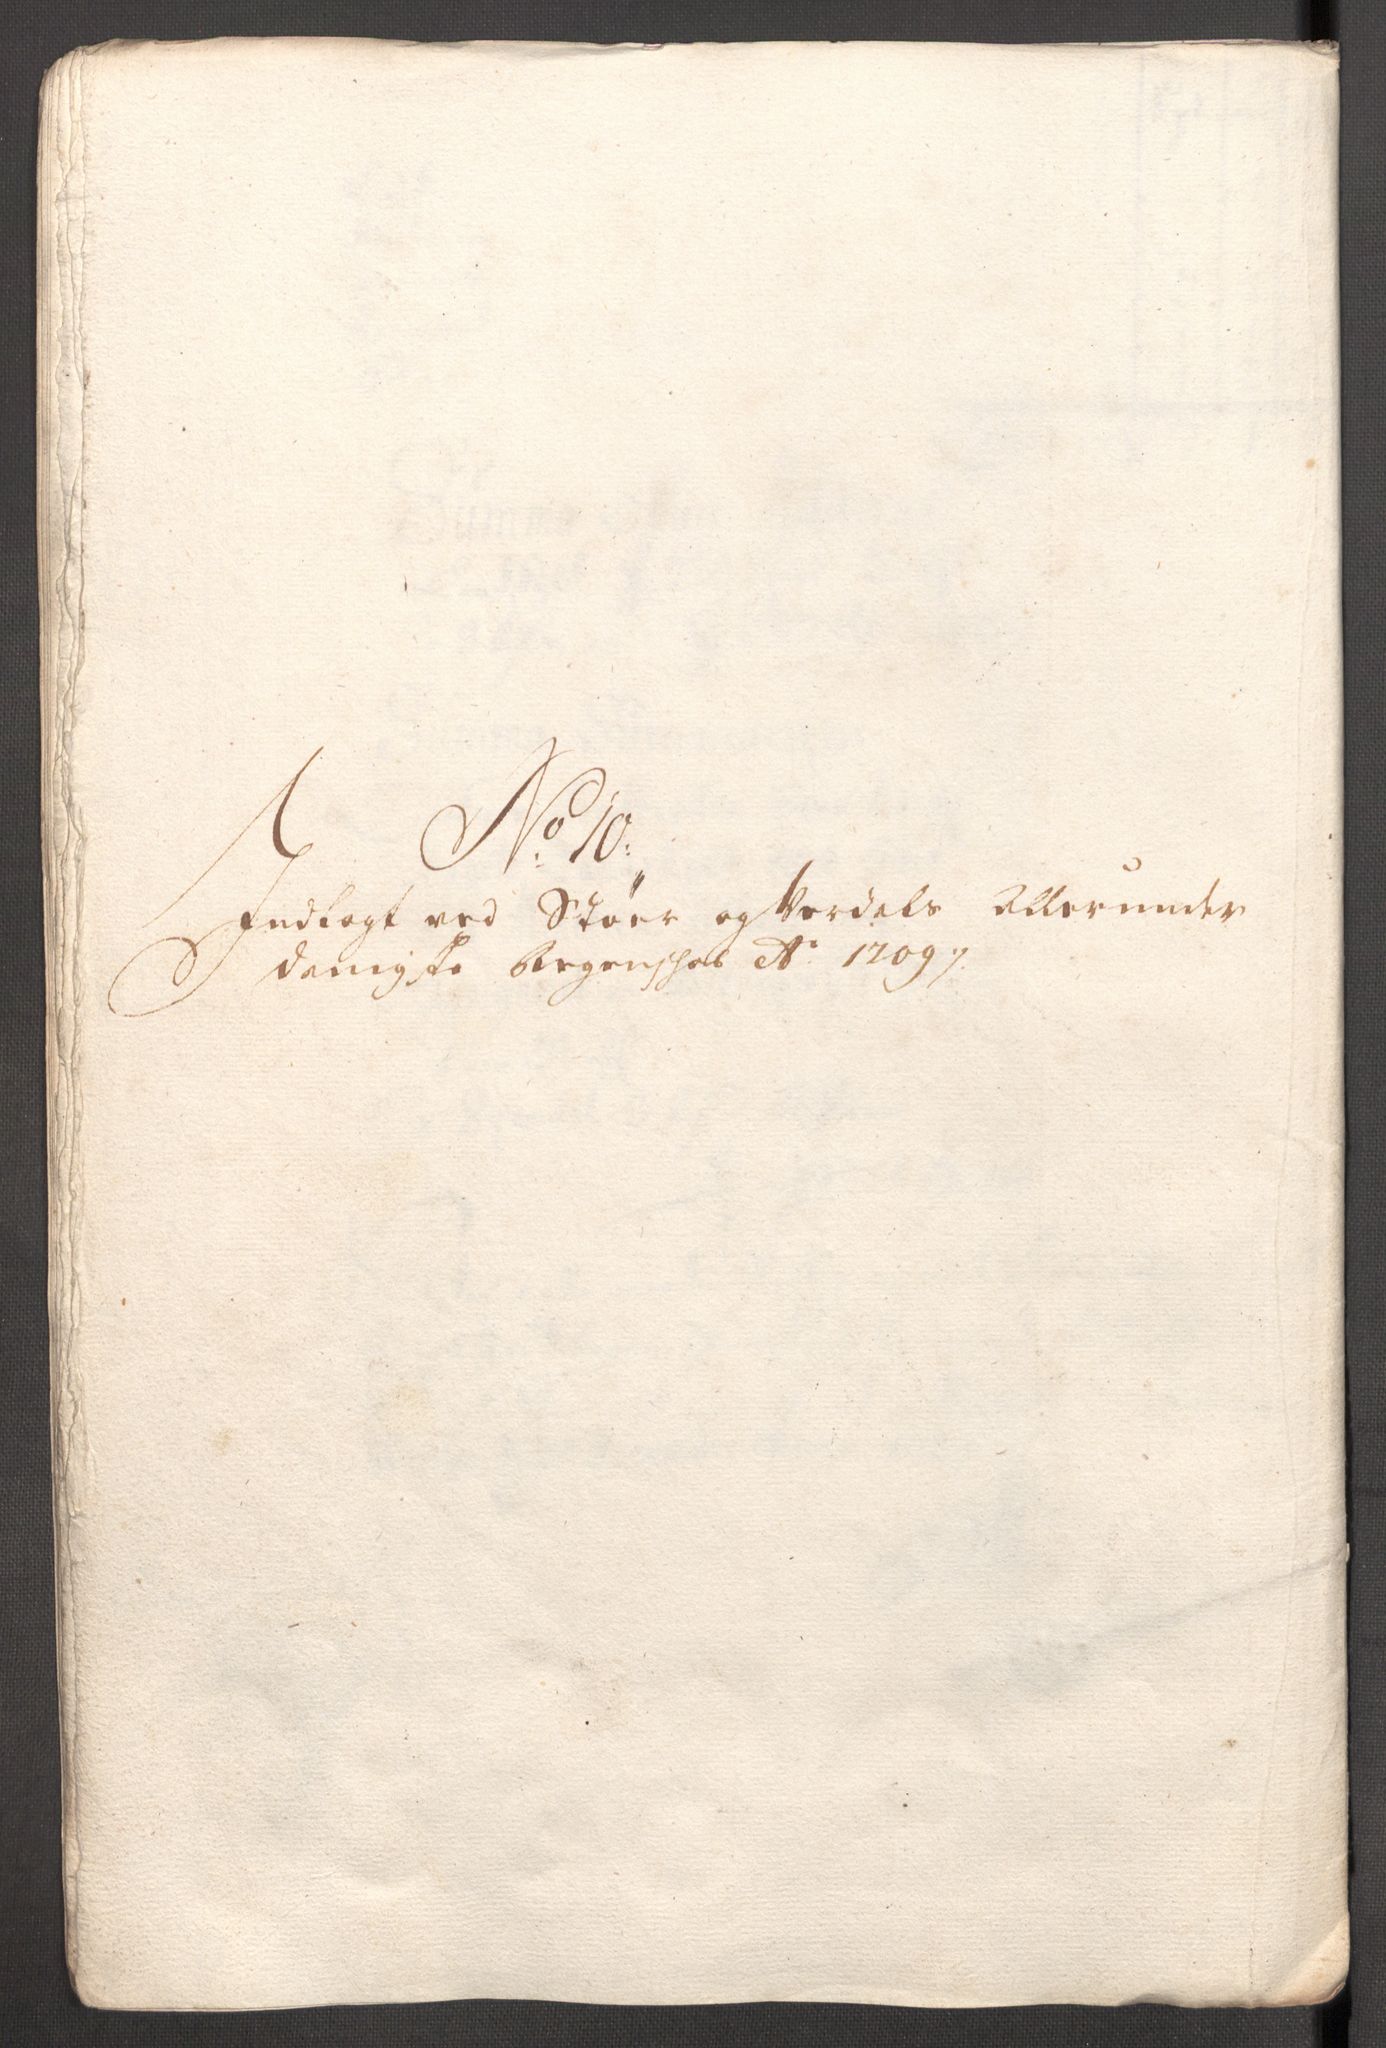 No 10:
Indlagt ved Støer og Verdals Allerunder
danigste Regenschab Ao 1709